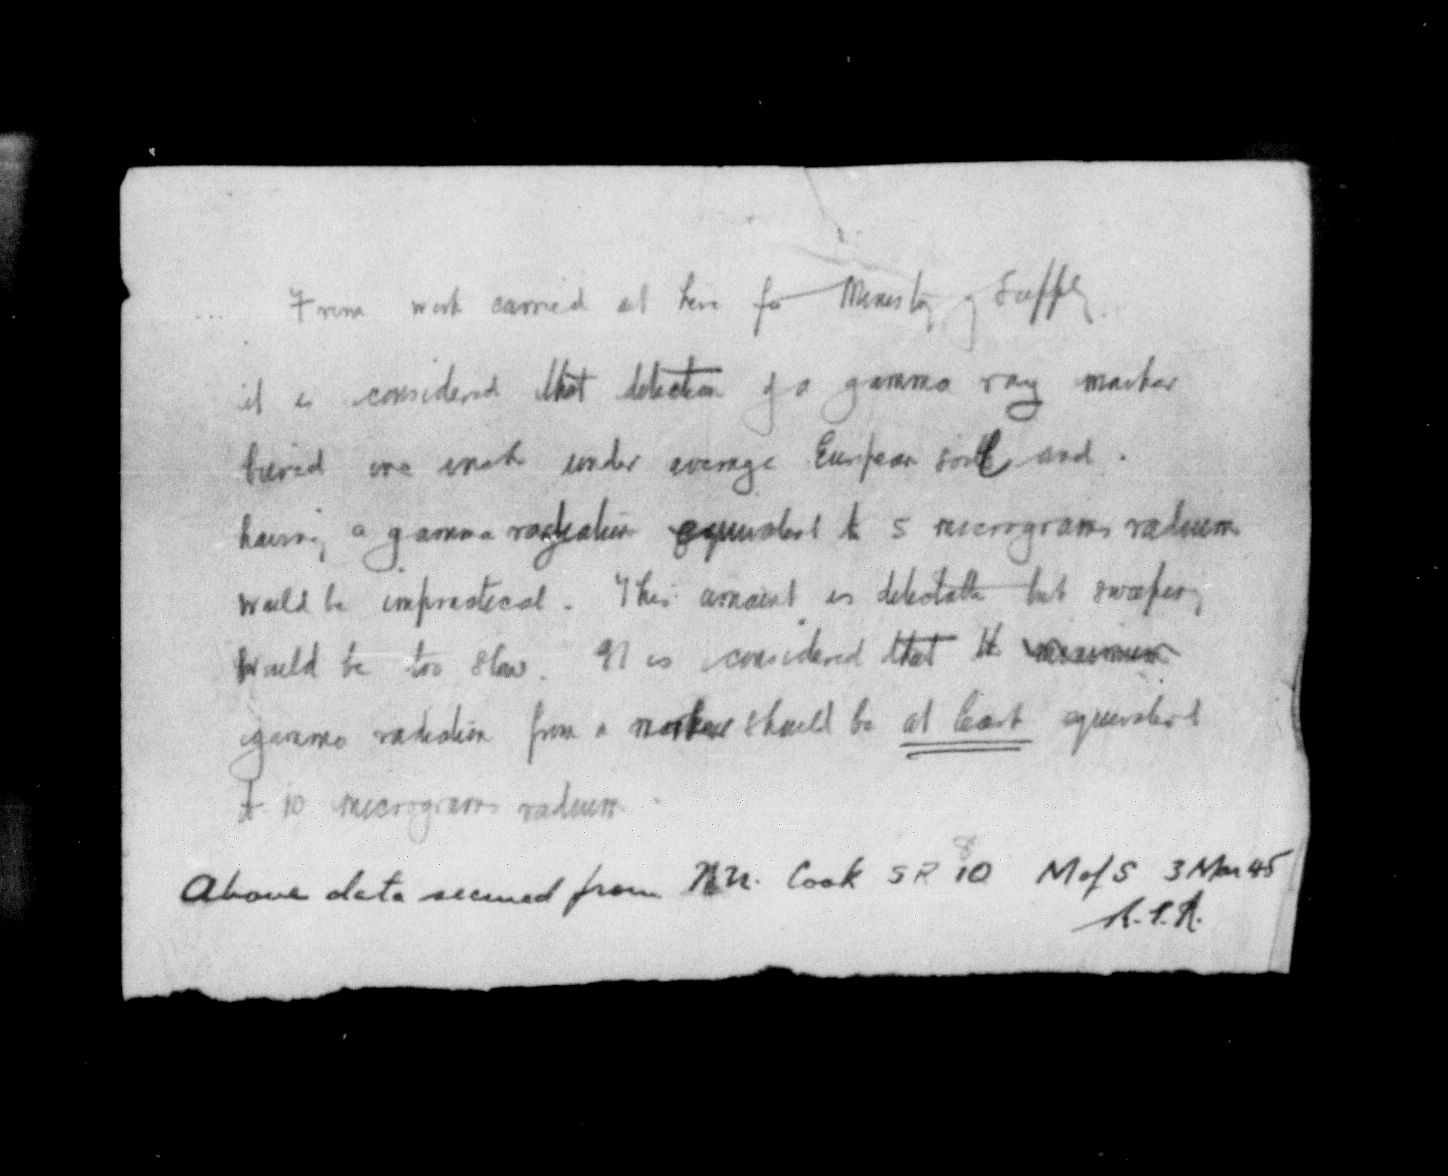 From work carried out here for Ministry of Supply
it is considered that detection of a gamma ray marker
buried one inch under average European soil and
having a gamma radiation equivalent to 5 micrograms radium
would be impractical. This amount is detectable but sweeping
would be too slow. It is considered that the minimum
gamma radiation from a marker should be at least equivalent
to 10 micrograms radium.
Above data secured from Mr. Cook SR 10 M of S 3 Mar 45